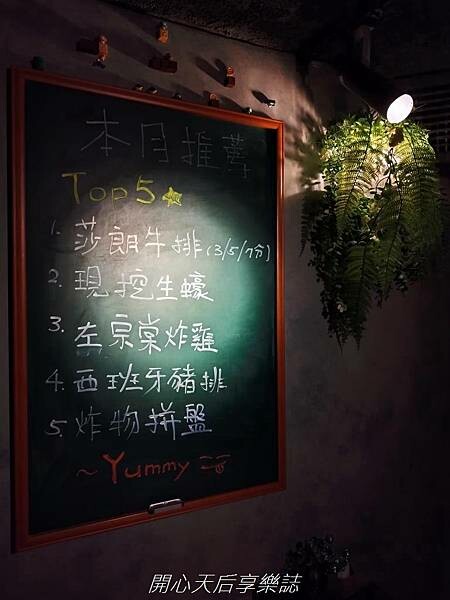 本月推薦
Top5
1. 莎朗牛排(3/5/7分)
2. 現挖生蠔
3. 左宗棠炸雞
4. 西班牙豬排
5. 炸物拼盤
~Yummy
開心天后享樂誌